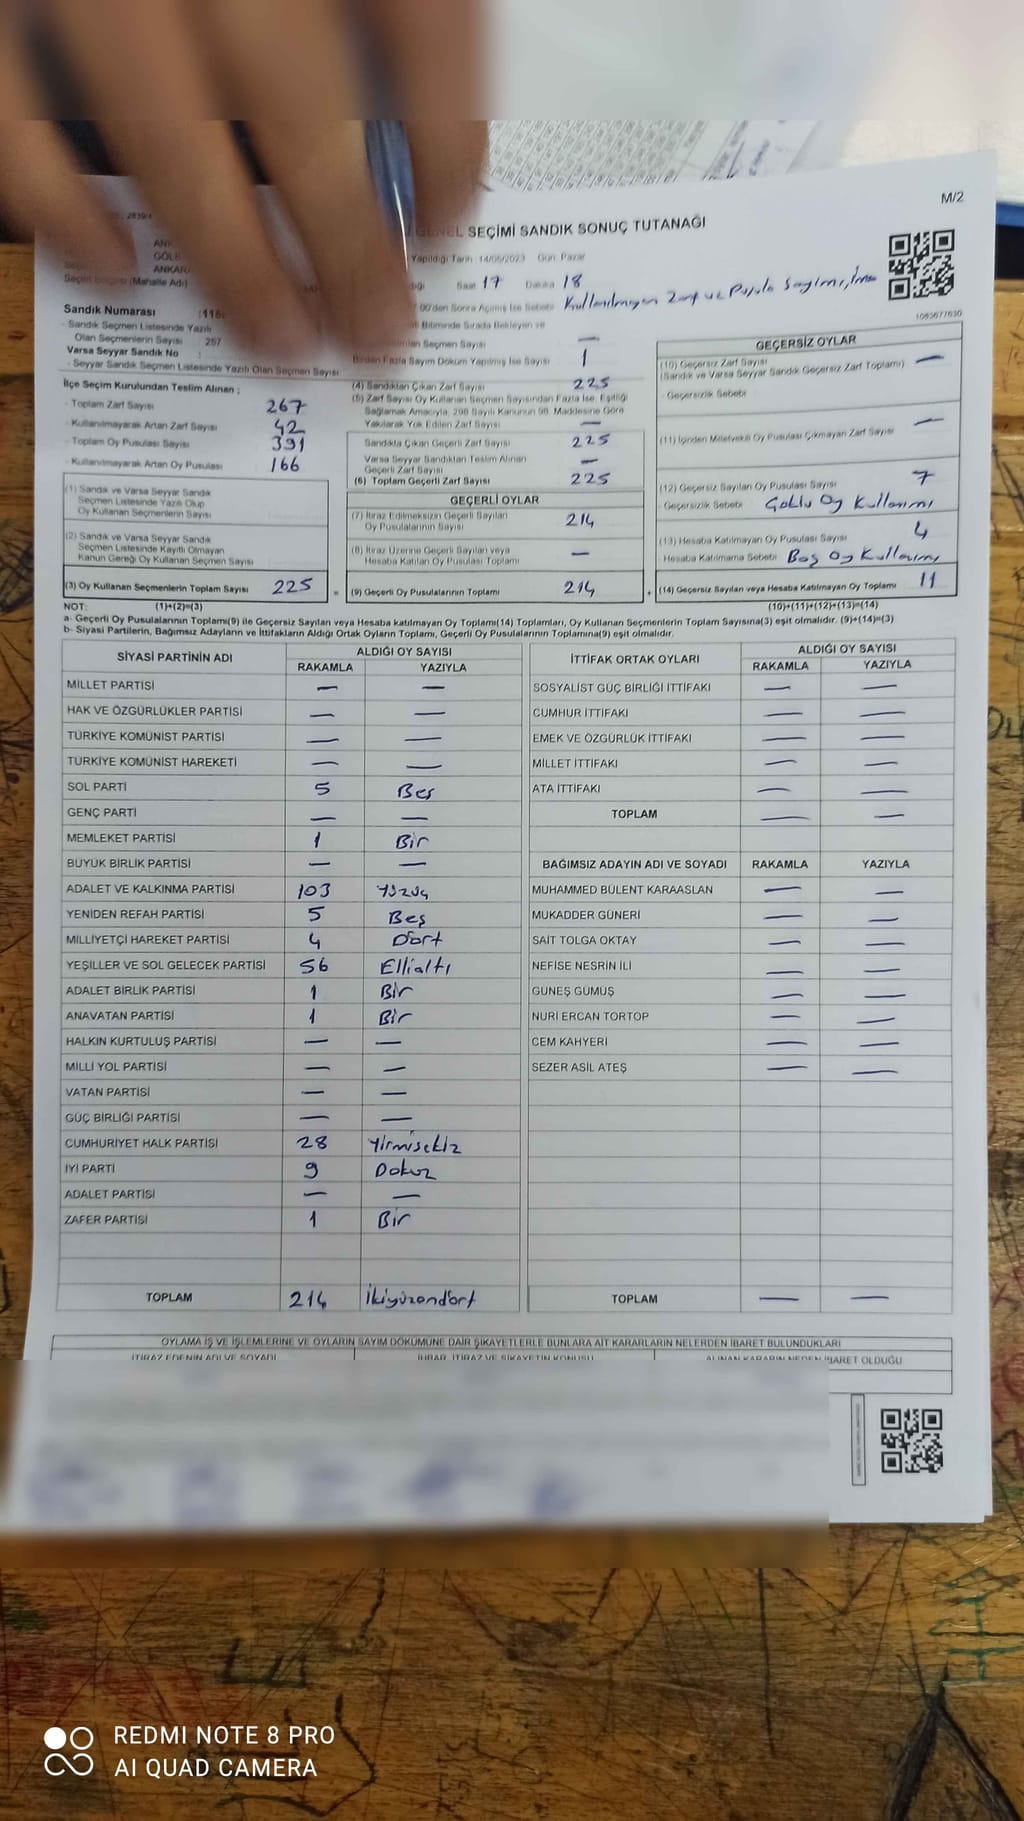 M/2
GENEL SEÇİMİ SANDIK SONUÇ TUTANAĞI
Yapıldığı Tarih 14/05/2023 Gün: Pazar
Saat 17 Dakika 18
(Mahalle Adı)
Kullanılmayan Zarf ve Pusula Sayımı,
1083677630
Sandık Numarası
- Sandık Seçmen Listesinde Yazılı
Olan Seçmenlerin Sayısı 257
Varsa Seyyar Sandık No :
- Seyyar Sandık Seçmen Listesinde Yazılı Olan Seçmen Sayısı
İlçe Seçim Kurulundan Teslim Alınan ;
- Toplam Zarf Sayısı 267
- Kullanılmayarak Artan Zarf Sayısı 42
- Toplam Oy Pusulası Sayısı 391
- Kullanılmayarak Artan Oy Pusulası 166
(1) Sandık ve Varsa Seyyar Sandık
Seçmen Listesinde Yazılı Olup
Oy Kullanan Seçmenlerin Sayısı
(2) Sandık ve Varsa Seyyar Sandık
Seçmen Listesinde Kayıtlı Olmayan
Kanun Gereği Oy Kullanan Seçmen Sayısı
(3) Oy Kullanan Seçmenlerin Toplam Sayısı 225 =
Bitiminde Sırada Bekleyen ve
Seçmen Sayısı —
Birden Fazla Sayım Döküm Yapılmış İse Sayısı 1
(4) Sandıktan Çıkan Zarf Sayısı 225
(5) Zarf Sayısı Oy Kullanan Seçmen Sayısından Fazla İse, Eşitliği
Sağlamak Amacıyla, 298 Sayılı Kanunun 98. Maddesine Göre
Yakılarak Yok Edilen Zarf Sayısı —
Sandıkta Çıkan Geçerli Zarf Sayısı 225
Varsa Seyyar Sandıktan Teslim Alınan
Geçerli Zarf Sayısı —
(6) Toplam Geçerli Zarf Sayısı 225
GEÇERLİ OYLAR
(7) İtiraz Edilmeksizin Geçerli Sayılan
Oy Pusulalarının Sayısı 214
(8) İtiraz Üzerine Geçerli Sayılan veya
Hesaba Katılan Oy Pusulası Toplamı —
(9) Geçerli Oy Pusulalarının Toplamı 214 +
GEÇERSİZ OYLAR
(10) Geçersiz Zarf Sayısı —
(Sandık ve Varsa Seyyar Sandık Geçersiz Zarf Toplamı)
- Geçersizlik Sebebi
(11) İçinden Milletvekili Oy Pusulası Çıkmayan Zarf Sayısı —
(12) Geçersiz Sayılan Oy Pusulası Sayısı 7
- Geçersizlik Sebebi Çoklu Oy Kullanımı
(13) Hesaba Katılmayan Oy Pusulası Sayısı 4
- Hesaba Katılmama Sebebi Boş Oy Kullanımı
(14) Geçersiz Sayılan veya Hesaba Katılmayan Oy Toplamı 11
NOT: (1)+(2)=(3) (10)+(11)+(12)+(13)=(14)
a- Geçerli Oy Pusulalarının Toplamı(9) ile Geçersiz Sayılan veya Hesaba katılmayan Oy Toplamı(14) Toplamları, Oy Kullanan Seçmenlerin Toplam Sayısına(3) eşit olmalıdır. (9)+(14)=(3)
b- Siyasi Partilerin, Bağımsız Adayların ve İttifakların Aldığı Ortak Oyların Toplamı, Geçerli Oy Pusulalarının Toplamına(9) eşit olmalıdır.
SİYASİ PARTİNİN ADI ALDIĞI OY SAYISI
RAKAMLA YAZIYLA
MİLLET PARTİSİ — —
HAK VE ÖZGÜRLÜKLER PARTİSİ — —
TÜRKİYE KOMÜNİST PARTİSİ — —
TÜRKİYE KOMÜNİST HAREKETİ — —
SOL PARTİ 5 Beş
GENÇ PARTİ — —
MEMLEKET PARTİSİ 1 Bir
BÜYÜK BİRLİK PARTİSİ — —
ADALET VE KALKINMA PARTİSİ 103 Yüzüç
YENİDEN REFAH PARTİSİ 5 Beş
MİLLİYETÇİ HAREKET PARTİSİ 4 Dört
YEŞİLLER VE SOL GELECEK PARTİSİ 56 Ellialtı
ADALET BİRLİK PARTİSİ 1 Bir
ANAVATAN PARTİSİ 1 Bir
HALKIN KURTULUŞ PARTİSİ — —
MİLLİ YOL PARTİSİ — —
VATAN PARTİSİ — —
GÜÇ BİRLİĞİ PARTİSİ — —
CUMHURİYET HALK PARTİSİ 28 Yirmisekiz
İYİ PARTİ 9 Dokuz
ADALET PARTİSİ — —
ZAFER PARTİSİ 1 Bir
TOPLAM 214 İkiyüzondört
İTTİFAK ORTAK OYLARI ALDIĞI OY SAYISI
RAKAMLA YAZIYLA
SOSYALİST GÜÇ BİRLİĞİ İTTİFAKI — —
CUMHUR İTTİFAKI — —
EMEK VE ÖZGÜRLÜK İTTİFAKI — —
MİLLET İTTİFAKI — —
ATA İTTİFAKI — —
TOPLAM — —
BAĞIMSIZ ADAYIN ADI VE SOYADI RAKAMLA YAZIYLA
MUHAMMED BÜLENT KARAASLAN — —
MUKADDER GÜNERİ — —
SAİT TOLGA OKTAY — —
NEFİSE NESRİN İLİ — —
GÜNEŞ GÜMÜŞ — —
NURİ ERCAN TORTOP — —
CEM KAHYERİ — —
SEZER ASİL ATEŞ — —
TOPLAM — —
OYLAMA İŞ VE İŞLEMLERİNE VE OYLARIN SAYIM DÖKÜMÜNE DAİR ŞİKAYETLERLE BUNLARA AİT KARARLARIN NELERDEN İBARET BULUNDUKLARI
İTİRAZ EDENİN ADI VE SOYADI İHBAR, İTİRAZ VE ŞİKAYETİN KONUSU ALINAN KARARIN NEDEN İBARET OLDUĞU
REDMI NOTE 8 PRO
AI QUAD CAMERA